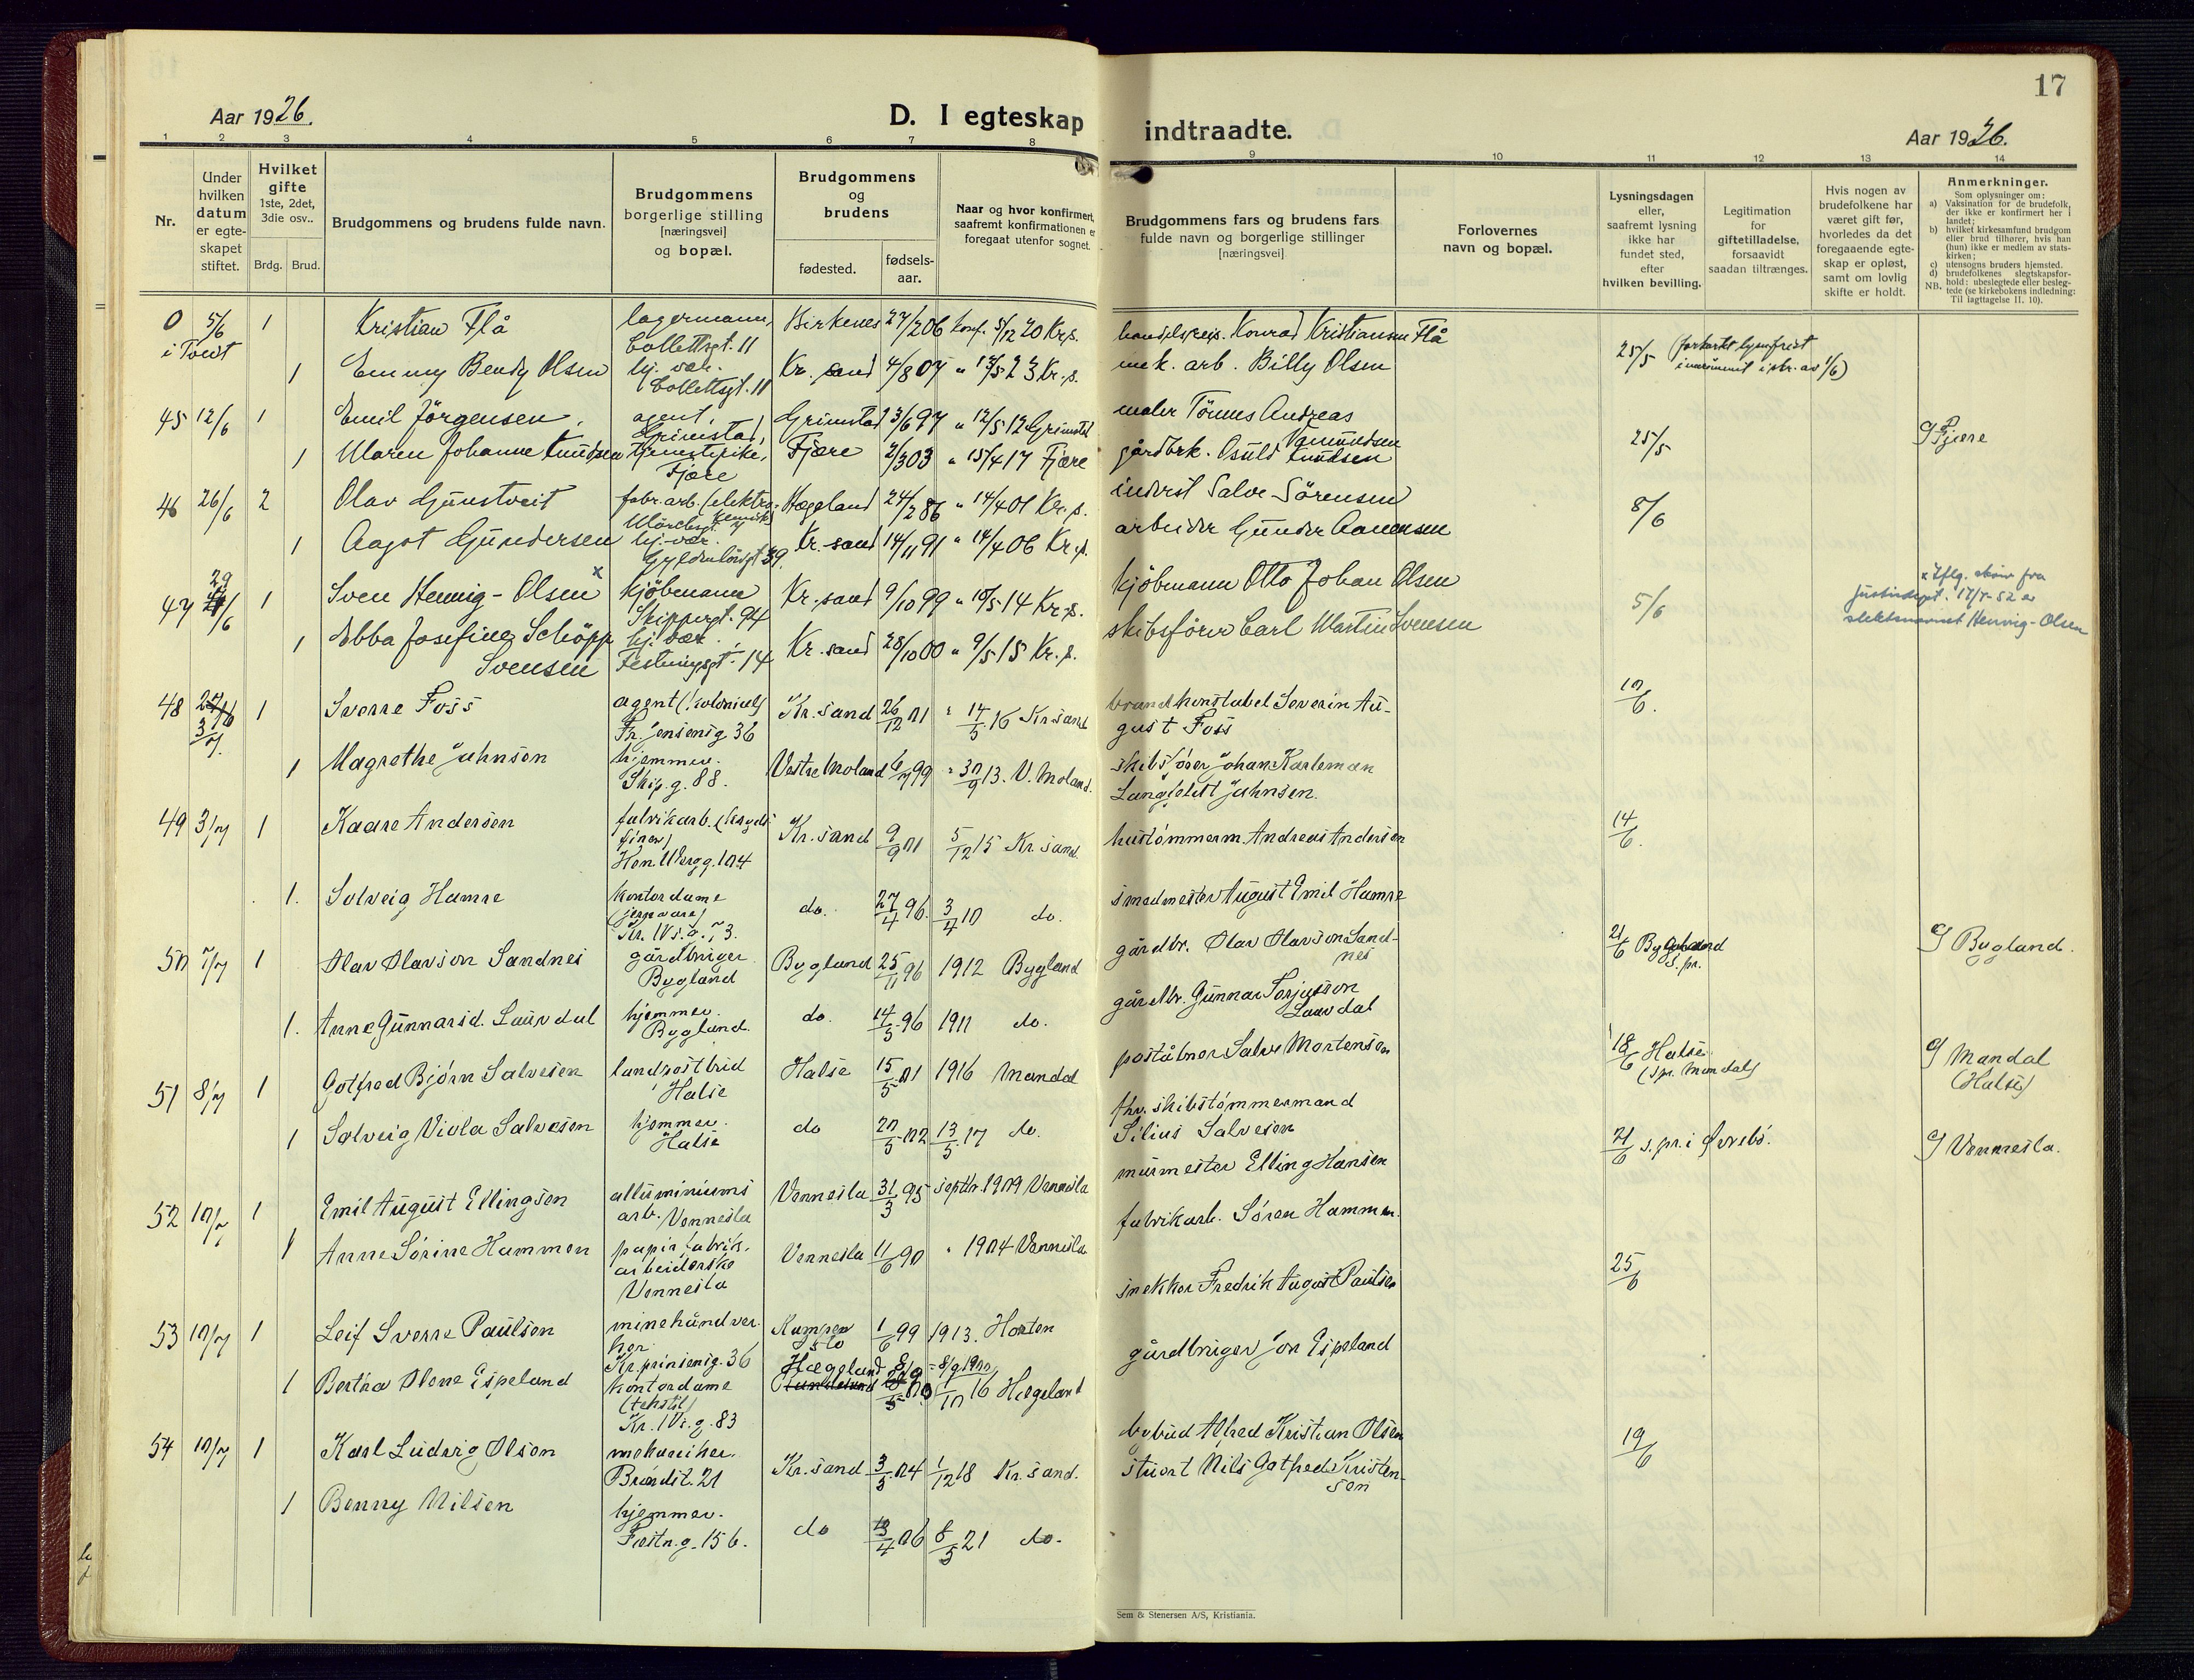 17
Aar 1926.
D. I egteskap indtraadte.
Aar 1926.
1 2 3 4 5 6 7 8 9 10 11 12 13 14
Nr.
Under hvilken datum er egteskapet stiftet.
Hvilket gifte 1ste, 2det, 3die osv..
Brdg. Brud.
Brudgommens og brudens fulde navn.
Brudgommens borgerlige stilling [næringsvei] og bopæl.
Brudgommens og brudens
fødested.
fødselsaar.
Naar og hvor konfirmert, saafremt konfirmationen er foregaat utenfor sognet.
Brudgommens fars og brudens fars fulde navn og borgerlige stillinger [næringsvei]
Forlovernes navn og bopæl.
Lysningsdagen eller, saafremt lysning ikke har fundet sted, efter hvilken bevilling.
Legitimation for giftetilladelse, forsaavidt saadan tiltrænges.
Hvis nogen av brudefolkene har været gift før, hvorledes da det foregaaende egteskap er opløst, samt om lovlig skifte er holdt.
Anmerkninger.
Som oplysninger om:
a) Vaksination for de brudefolk, der ikke er konfirmert her i landet;
b) hvilket kirkesamfund brudgom eller brud tilhører, hvis han (hun) ikke er medlem av statskirken;
c) utensogns bruders hjemsted.
d) brudefolkenes slegtskapsforhold: ubeslegtede eller beslegtede (se kirkebokens indledning:
NB. Til Iagttagelse II. 10).
0 5/6 1 Kristian Flå lagermann, Birkenes 27/2 06 konf. 5/12 20 Kr.s. Konrad Kristiansen Flå 25/5
i Tveit Collettsgt. 11
1 Emmy Bendy Olsen hj. vær. Kr. sand 4/8 07 " 13/5 23 Kr. s. mek. arb. Billy Olsen
Collettsgt. 11
45 12/6 1 Emil Jörgensen agent, Grimstad 3/6 97 " 12/5 12 Grimstd maler Tönnes Andreas 25/5 g Fjære
Grimstad
1 Maren Johanne Knudsen tjenestepike, Fjære 2/3 03 " 15/4 17 Fjære gårdbrk. Osuld Knudsen
Fjære
46 26/6 2 Olav Gunstveit fabr. arb. (elektrokemisk) Hægeland 24/2 86 " 14/4 01 Kr. s. inderst Salve Sörensen 8/6
1 Aagot Gundersen hj. vær. Kr. sand 14/11 91 " 14/4 06 Kr. s. arbeider Gunder Aanensen
Gyldenlövsgt 39.
47 29/6 1 Sven Hennig-Olsen x kjöbmann Kr. sand 9/10 99 " 10/5 14 Kr. s. kjöbmann Otto Johan Olsen 5/6
Skippergt. 94
x Iflg. skriv fra
justisdept. 17/5-52 er
slektsnavnet Hennig-Olsen
1 Ebba Josefine Schöpp hj. vær. Kr. sand 28/10 00 " 9/5 15 Kr. s. skibsförer Carl Martin Svensen
Svensen Festningsgt. 14
48 3/7 1 Sverre Foss agent (kolonial) Kr. sand 26/12 01 " 14/5 16 Kr. sand brandkonstabel Severin Au- 10/6.
Fr. Jensensg 36 gust Foss
1 Magrethe Johnsen hjemmev. Vestre Moland 6/7 99 " 30/9 13. V. Moland. skibsförer Johan Karleman
Skip. g. 88. Langfeldt Johnsen.
49 3/7 1 Kaare Andersen fabrikarb. Kr. sand 9/9 01 5/12 15 Kr. sand. hustømmerm. Andreas Andersen 14/6.
Hen. Werg g. 104
1. Solveig Hamre kontordame do. 27/4 96. 3/4 10 do. smedmester August Emil Hamre
(jernvare)
Kr. IVs. g. 73.
50 7/7 1 Olav Olavson Sandnes gårdbruger Bygland 25/11 96 1912 Bygland gårdbr. Olav Olavson Sand- 21/6 Bygland g Bygland.
Bygland nes s. pr.
1. Anne Gunnarsd. Lauvdal hjemmev. do. 14/5 96 1911 do. gårdbr. Gunnar Torjusson
Bygland. Lauvdal
51 8/7 1 Gotfred Bjørn Salvesen landpostbud Halse 15/5 01 1916 Mandal poståbner Salve Mortensen 18/6 Halse g Mandal
Halse (s. pr. Mandal) (Halse)
1 Solveig Viola Salvesen hjemmev. do 20/5 02 13/5 17 do. fhv. skibstømmermand
Halse Silius Salvesen
52 10/7 1 Emil August Ellingsen alluminiums Vennesla 31/3 95 septbr. 1909 Vennesla murmester Elling Hansen 21/6 s. pr. i Øvrebö. g Vennesla.
arb. Vennesla
1 Anne Sörine Hammen papirfabrik- Vennesla 11/6 90 " 1904 Vennesla fabrikarb. Sören Hammen.
arbeiderske
Vennesla
53 10/7 1 Leif Sverre Paulsen minehåndver- Kampen 1/6 99 1913. Horten snekker Fredrik August Paulsen 25/6
ker Oslo
Kr. prinsensg. 36
1 Bertha Olene Espeland kontordame Hægeland 1/10 16 Hægeland gårdbruger Jon Espeland
(tekstil)
Kr. IVs. g. 83
54 10/7 1 Karl Ludvig Olsen mekaniker. Kr. sand 3/5 04 1/12 18 Kr. sand. bybud Alfred Kristian Olsen 19/6
Brøndst. 21
1 Benny Nilsen hjemmev. do 13/4 06 8/5 21 do. stuert Nils Gotfred Kristen-
Festn. g. 15 b. sen
Sem & Stenersen A/S, Kristiania.